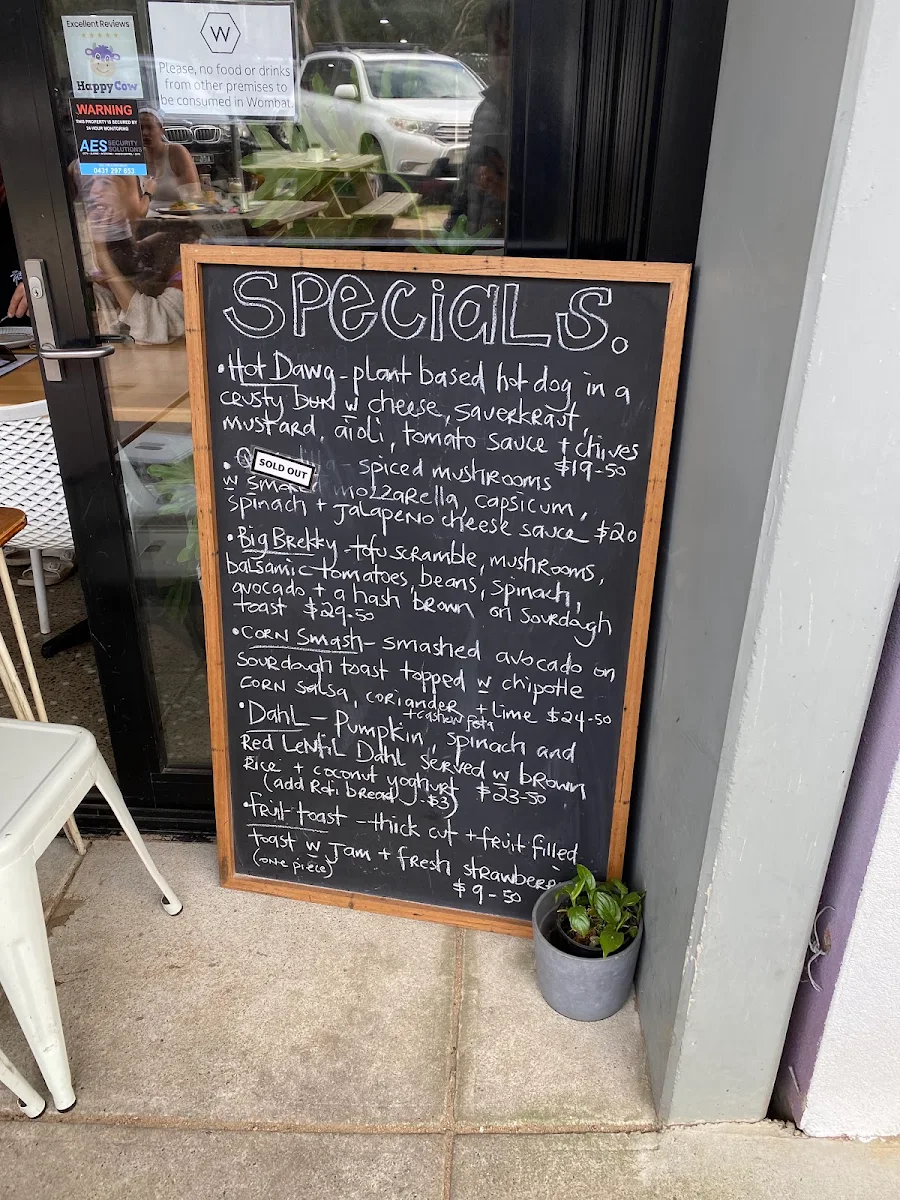 Excellent Reviews
HappyCow
WARNING
THIS PROPERTY IS SECURED BY
24-HOUR MONITORING
AES SECURITY SOLUTIONS
0431 297 653
W
Please, no food or drinks
from other premises to
be consumed in Wombat
SPECIALS.
•Hot Dawg - plant based hot dog in a
crusty bun w cheese, sauerkraut,
mustard, aioli, tomato sauce + chives
$19-50
SOLD OUT
- spiced mushrooms
w mozzarella, capsicum,
spinach + jalapeno cheese sauce $20
•Big Brekky - tofu scramble, mushrooms,
balsamic tomatoes, beans, spinach,
avocado, + a hash brown on sourdough
toast $29-50
•Corn Smash - smashed avocado on
sourdough toast topped w chipotle
corn salsa, coriander + lime $24-50
+ cashew feta
•Dahl - Pumpkin, spinach and
Red Lentil Dahl served w brown
Rice + coconut yoghurt $23-50
(add Roti bread - $3)
•fruit toast - thick cut + fruit filled
toast w jam + fresh
(one piece)
$9-50